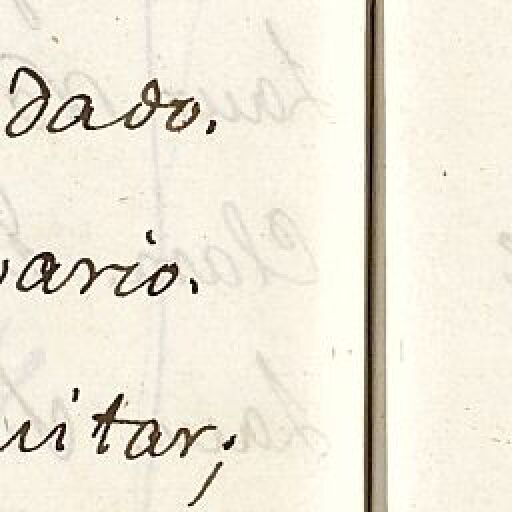 dado.
vario.
uitar;